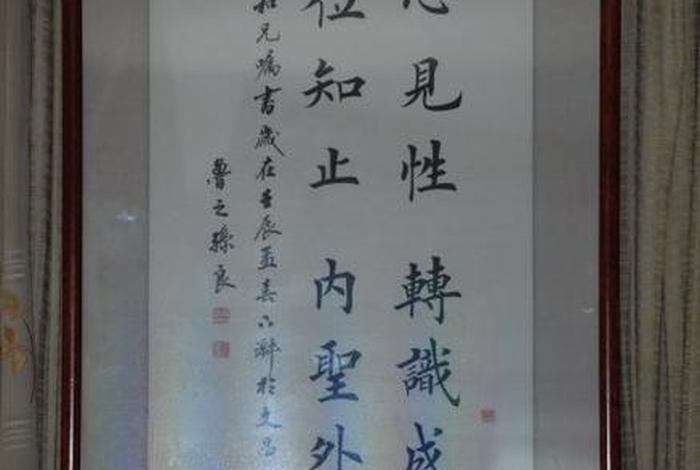 心見性 轉識成
位知止 內聖外
和兄嘱書歲在壬辰孟春
於文昌
魯之孫良